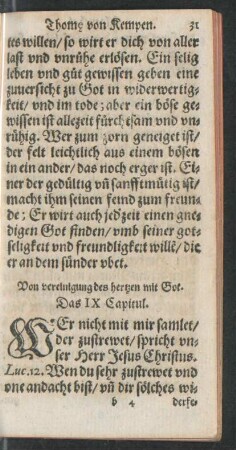 Thomę von Kempen. 31
tes willen/ so wirt er dich von aller
last vnd vnrühe erlösen. Ein selig
leben vnd güt gewissen geben eine
zuuersicht zu Got in widerwertig-
keit/ vnd im tode; aber ein böse ge-
wissen ist allezeit fürchtsam vnd vn-
rühig. Wer zum zorn geneiget ist/
der felt leichtlich aus einem bösen
in ein ander/ das noch erger ist. Ei-
ner der gedültig vñ sanfftmütig ist/
macht ihm seinen feind zum freun-
de; Er wirt auch jed'zeit einen gne-
digen Got finden/ vmb seiner got-
seligkeit vnd freundligkeit willē/ die
er an dem sünder vbet.
Von vereinigung des hertzen mit Got.
Das IX Capitul.
WEr nicht mit mir samlet/
der zustrewet/ spricht vn-
ser Herr Jesus Christus.
Luc.12. Wen du sehr zustrewet vnd
one andacht bist/ vñ dir sölches wi-
b 4 derfe-